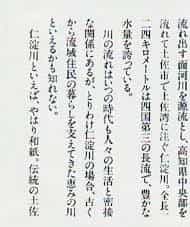 流れ出す面河川を源流とし、高知県中央部を
流れて土佐市で土佐湾に注ぐ仁淀川。全長
一二四キロメートルは四国第三の長流で、豊かな
水量を誇っている。
川の流れはいつの時代も人々の生活と密接
な関係にあるが、とりわけ仁淀川の場合、古く
から流域住民の暮らしを支えてきた恵みの川
といえるかも知れない。
仁淀川といえば、やはり和紙。伝統の土佐